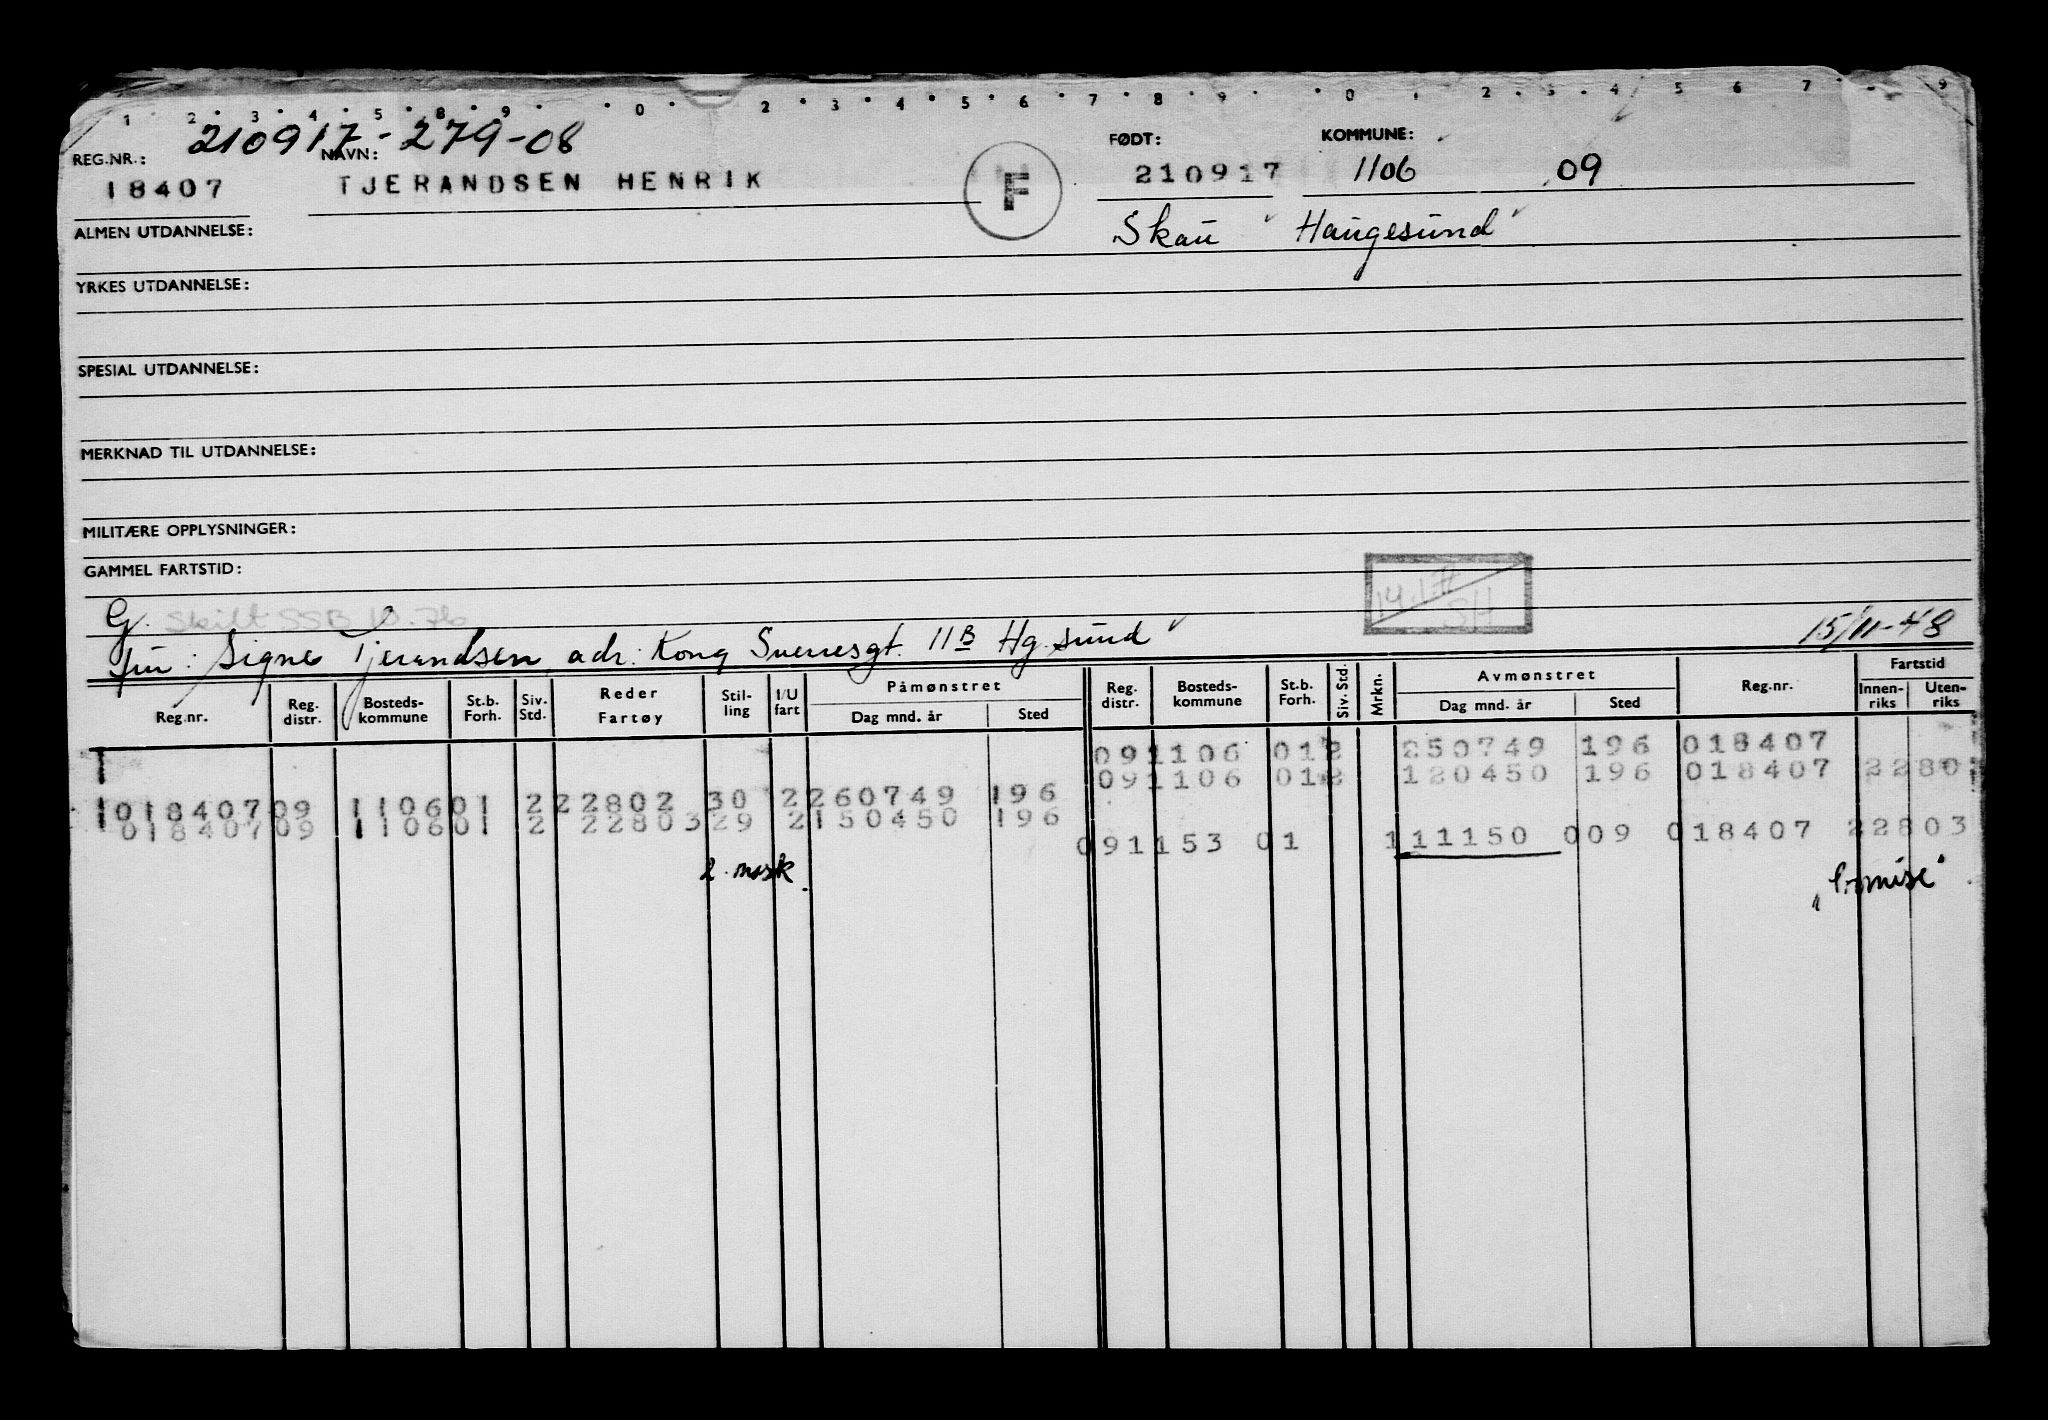 1 2 3 4 5 8 9 0 2 3 4 5 6 7 8 9 0 1 2 3 4 5 6 7 9
210917-279-08
REG.NR.: NAVN: FØDT: KOMMUNE:
18407 TJERANDSEN HENRIK F 210917 1106 09
ALMEN UTDANNELSE: Skau Haugesund
YRKES UTDANNELSE:
SPESIAL UTDANNELSE:
MERKNAD TIL UTDANNELSE:
MILITÆRE OPPLYSNINGER:
GAMMEL FARTSTID:
G. Skilt SSB 10.76 SH
fru: Signe Tjerandsen, adr: Kong Sverresgt. 11B Hg.sund 15/11-48
Reg.nr. Reg. distr. Bosteds-kommune St.b. Forh. Siv. Std. Reder Fartøy Stil-ling I/U fart Påmønstret Dag mnd. år Sted Reg. distr. Bosteds-kommune St.b. Forh. Siv. Std. Mrkn. Avmønstret Dag mnd. år Sted Reg.nr. Fartstid Innen-riks Uten-riks
091106 012 250749 196 018407
091106 012 120450 196 018407 2280
018407 09 1106 01 2 22802 30 2 260749 196
018407 09 1106 01 2 22803 29 2 150450 196
091153 01 1 111150 009 018407 22803
2. mask.